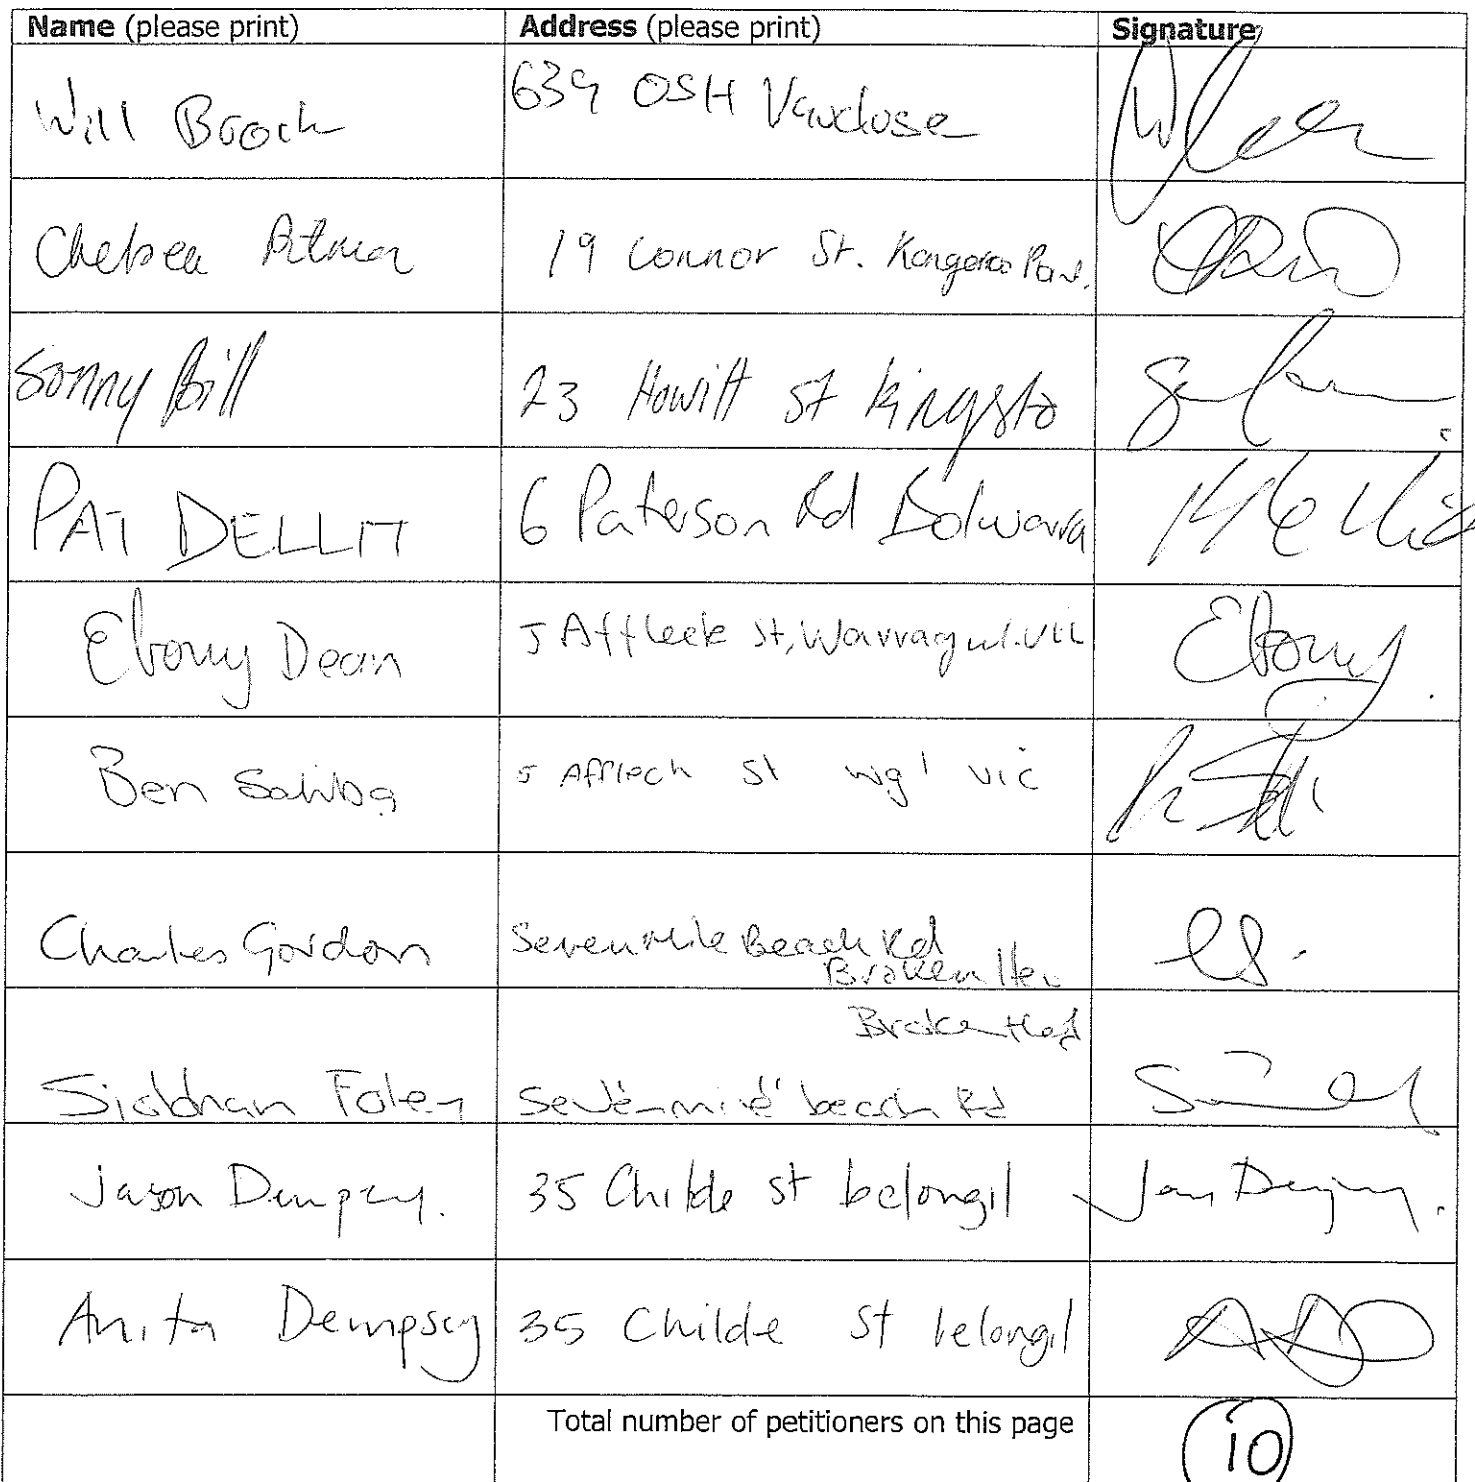 Name (please print) Address (please print) Signature
Will Broch 639 OSH Vaucluse
Chelsea Pitman 19 Connor St. Kangaroo Point.
Sonny Bill 23 Howitt st Kingsto
PAT DELLIT 6 Paterson Rd Bolwarra
Ebony Dean 5 Affleck St, Warragul. VIC Ebony
Ben Saliba 5 Affleck St wgl vic
Charles Gordon Seven Mile Beach Rd
Broken Hea
Broken Head
Siobhan Foley Seven mile beach Rd
Jason Dempsey. 35 Childe st belongil
Anita Dempsey 35 Childe St belongil
Total number of petitioners on this page 10